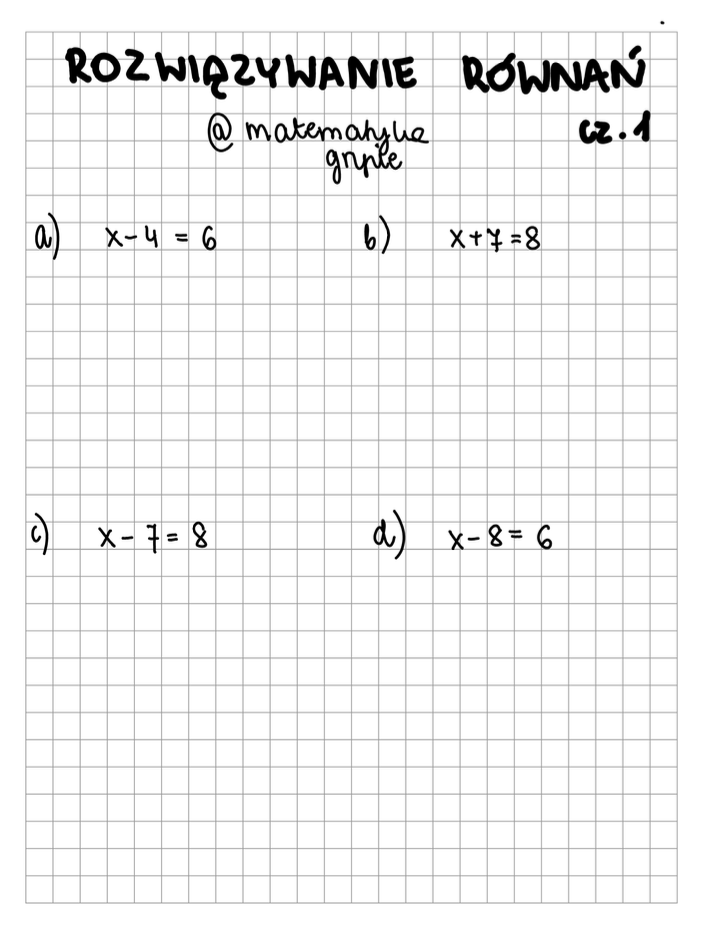 ROZWIĄZYWANIE RÓWNAŃ
@matematyka cz.1
gryple
a) x-4 = 6 b) x+7=8
c) x-7= 8 d) x-8= 6